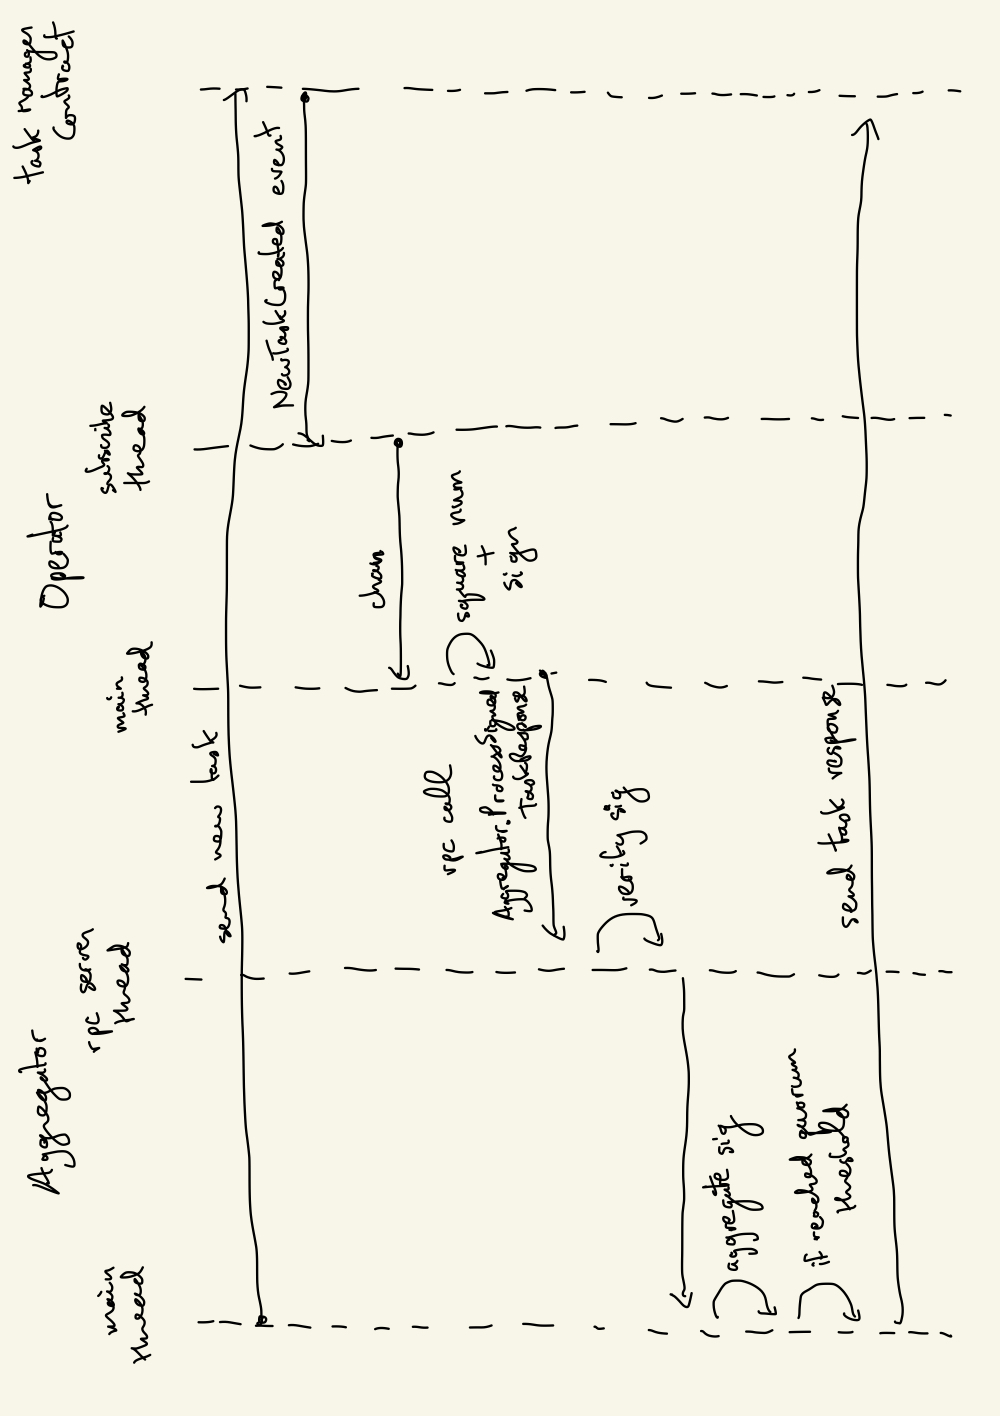 Aggregator
Operator
task Manager
Contract
main
thread
rpc server
thread
main
thread
subscribe
thread
send new task
NewTaskCreated event
chan
rpc call
Aggregator.ProcessSigned
TaskResponse
square num
+
sign
verify sig
aggregate sig
if reached quorum
threshold
send task response